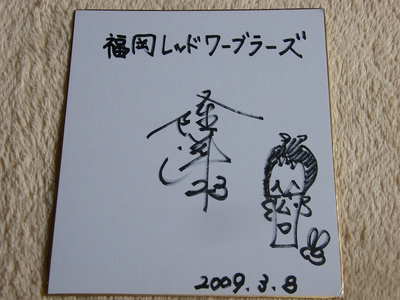 福岡レッドワーブラーズ
23
2009.3.8